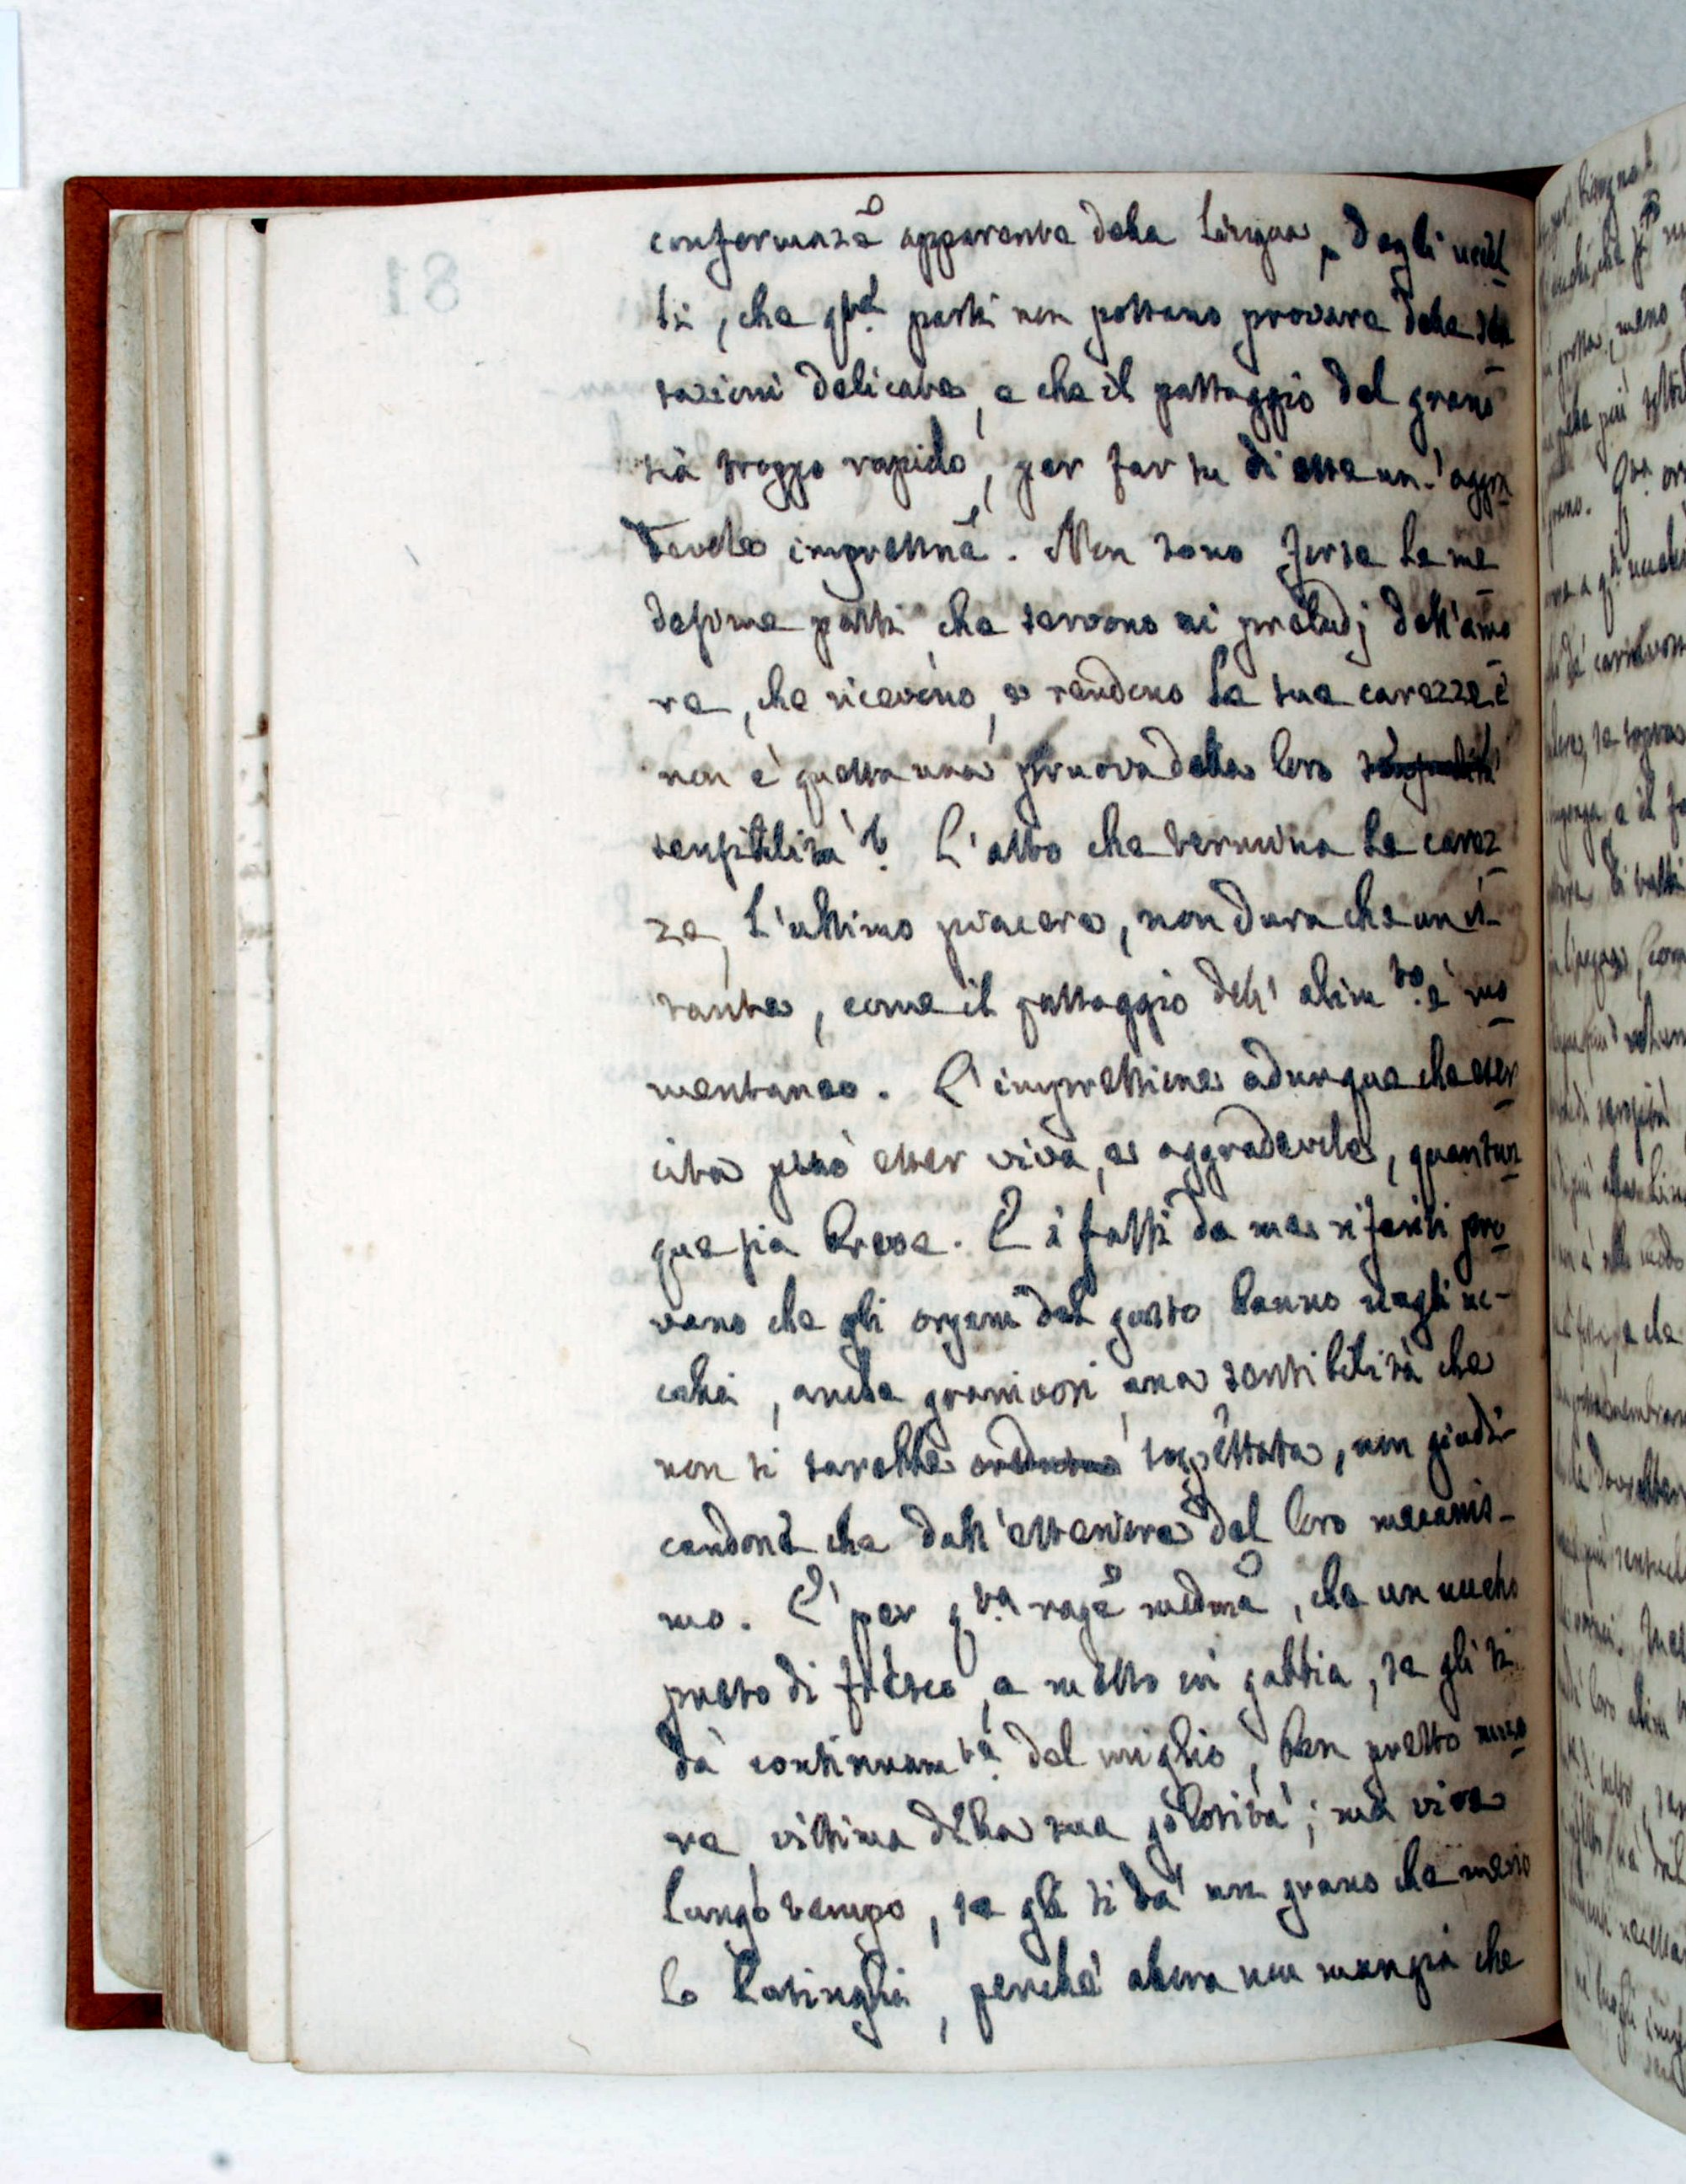 conformazẽ apparente della lingua degli uccel
li, che q.ste parti non possano provare delle sen
sazioni delicate, e che il passaggio del grano
sia troppo rapido, per far su di esse un'aggra
devole impressñe. Non sono forse le me
desime parti che servono ai preludj dell'amo
re, che ricevono, e rendono le sue carezze, e
non è questa una pruova della loro
sensibilità? L'atto che termina le carez
ze, l'ultimo piacere, non dura che un is-
tante, come il passaggio dell' alim.to è mo
mentaneo. L'impressione adunque che eser
cita può esser viva, e aggradevole, quantun
que sia breve. E i fatti da me riferiti pro
vano che gli organi del gusto hanno negli uc-
celli, anche granivori, una sensibilità che
non si sarebbe sospettata, non giudi-
candone che dall'esteriore del loro mecanis-
mo. È per q.ta ragẽ medmã, che un uccello
preso di fresco, e messo in gabbia, se gli si
dà continuam.te del miglio, ben presto muo
re vittima della sua golosità; ma vive
lungo tempo, se gli si dà un grano che meno
lo lusinghi, perchè allora non mangia che
81